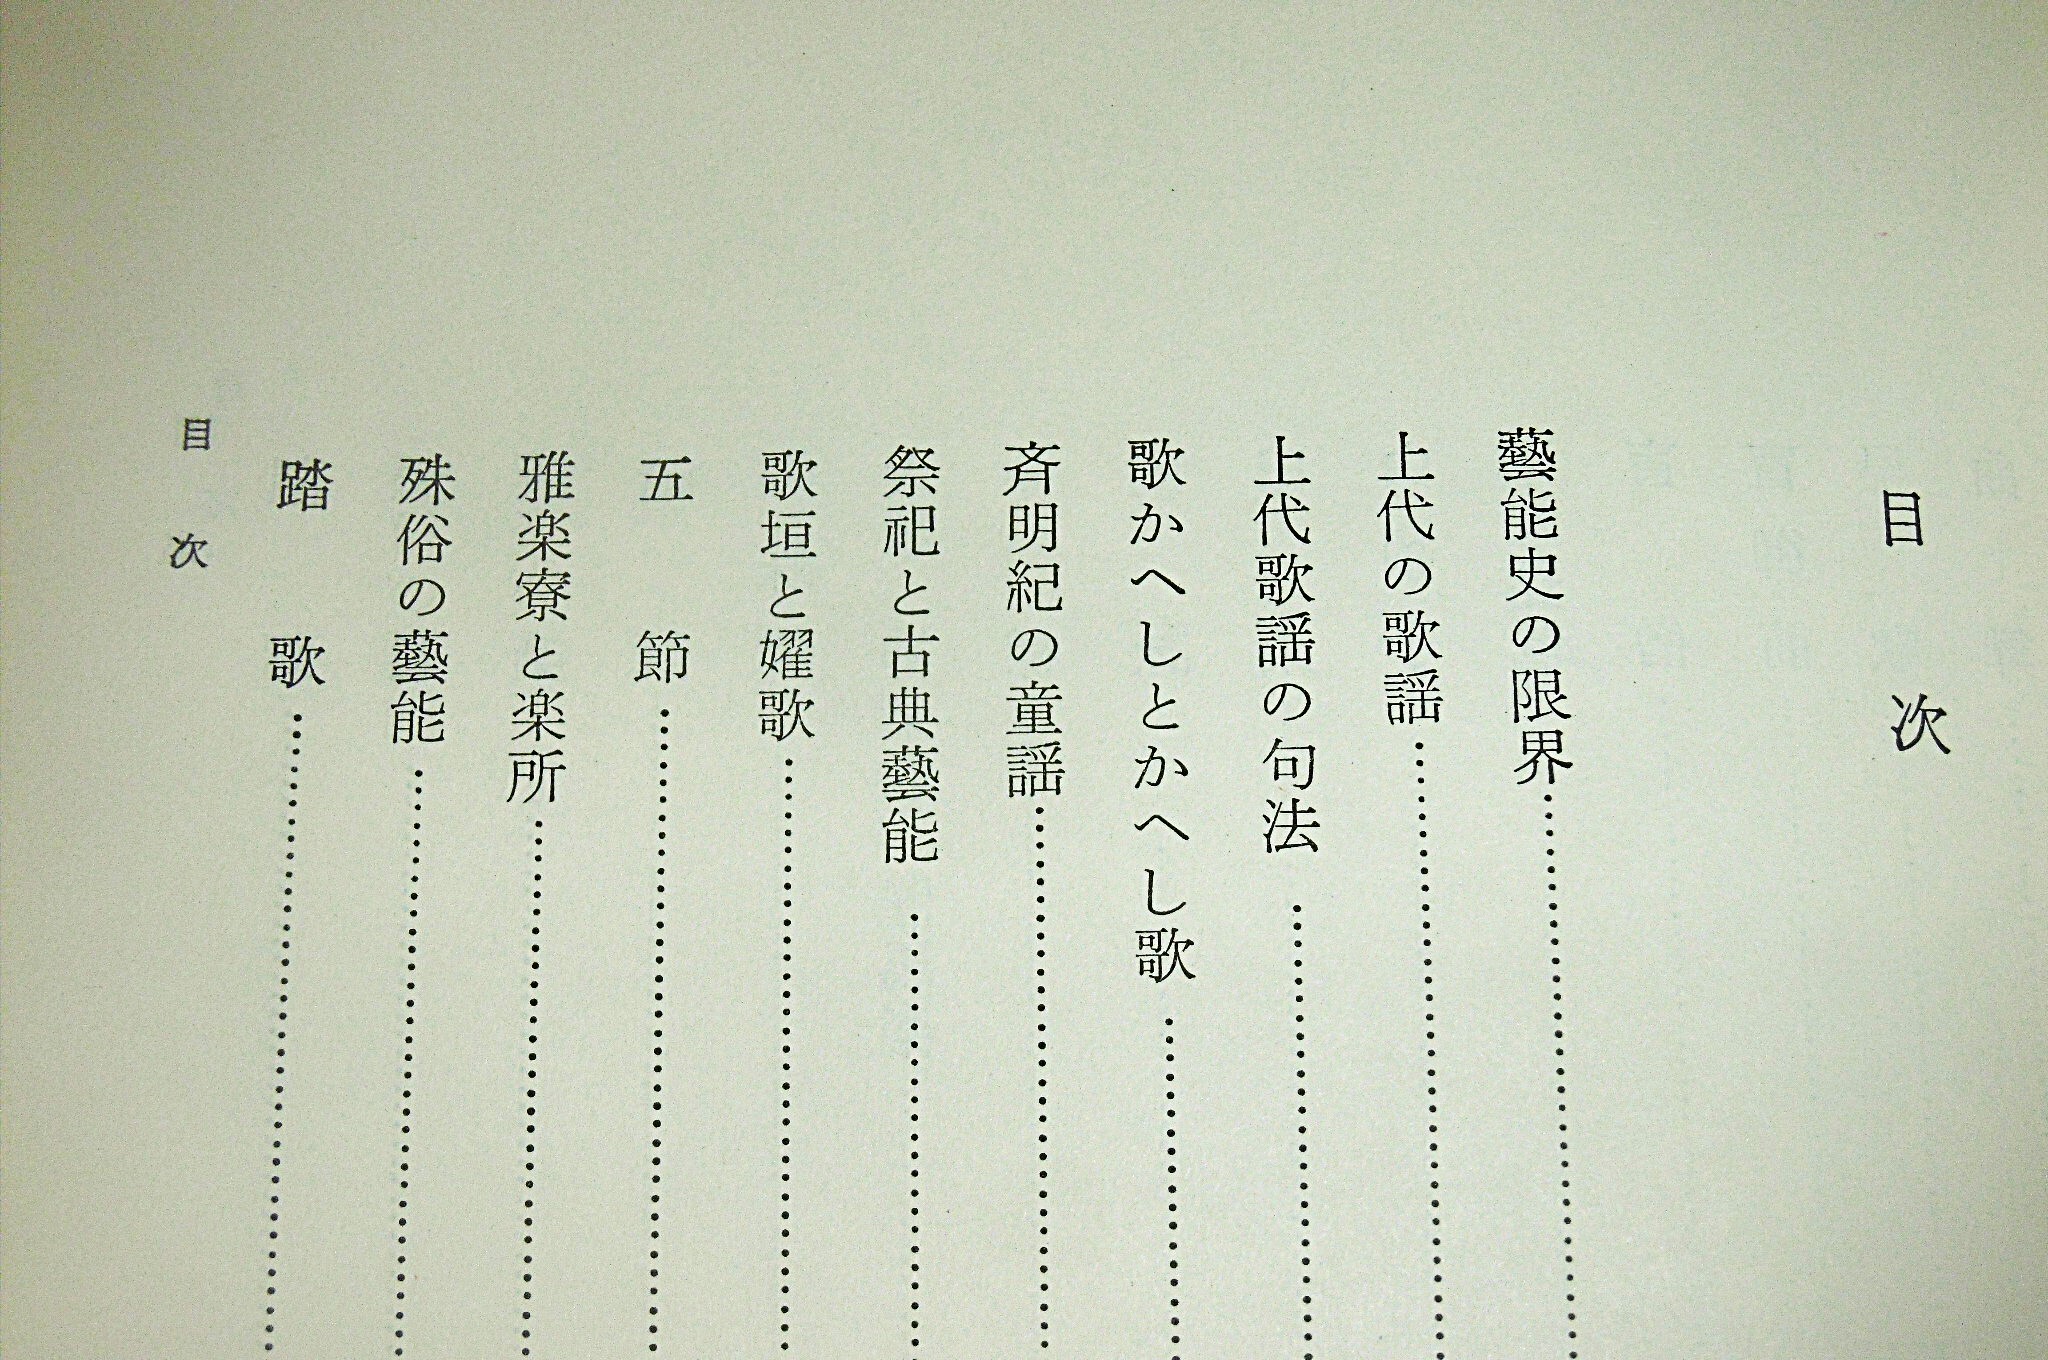 目次
藝能史の限界
上代の歌謡
上代歌謡の句法
歌かへしとかへし歌
斉明紀の童謡
祭祀と古典藝能
歌垣と嬥歌
五節
雅楽寮と楽所
殊俗の藝能
踏歌
目次